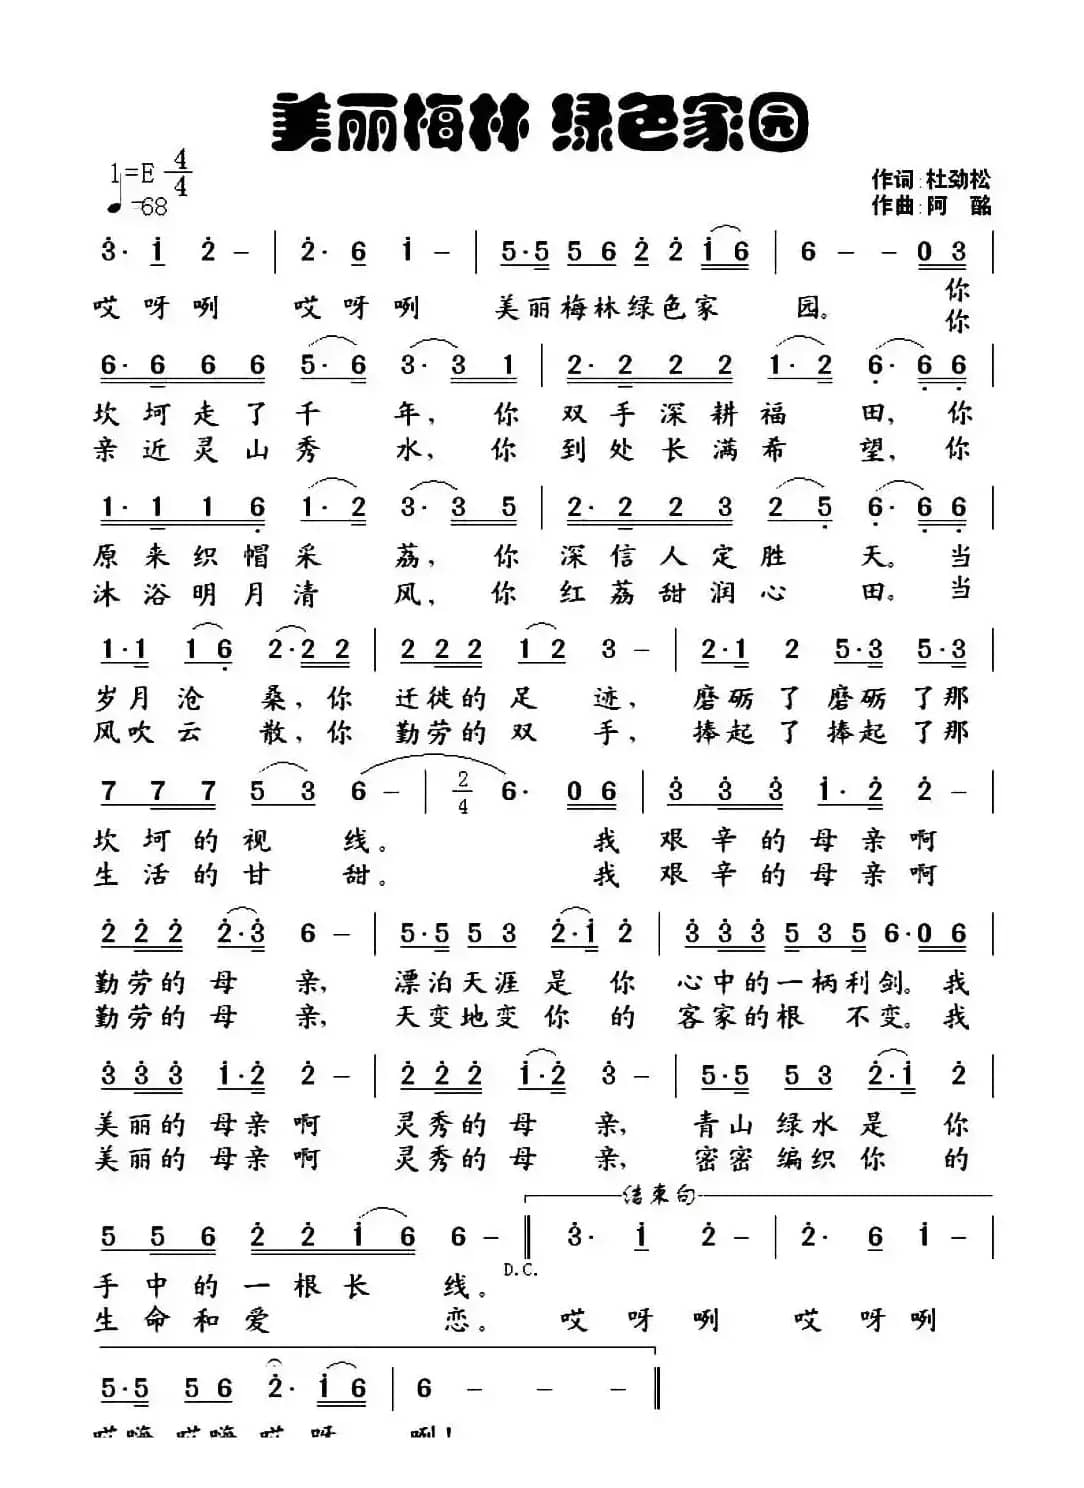 美丽梅林 绿色家园
1=E 4/4
作词:杜劲松
♩=68
作曲:阿 酩
3· 1 2 - | 2· 6 1 - | 5·5 5 6 2 2 1 6 | 6 - - 0 3 |
哎 呀 咧 哎 呀 咧 美丽梅林绿色家 园。 你
你
6· 6 6 6 5· 6 3· 3 1 | 2· 2 2 2 1· 2 6· 6 6 |
坎 坷 走 了 千 年, 你 双 手 深 耕 福 田, 你
亲 近 灵 山 秀 水, 你 到 处 长 满 希 望, 你
1· 1 1 6 1· 2 3· 3 5 | 2· 2 2 3 2 5 6· 6 6 |
原 来 织 帽 采 荔, 你 深 信 人 定 胜 天。 当
沐 浴 明 月 清 风, 你 红 荔 甜 润 心 田。 当
1·1 1 6 2·2 2 | 2 2 2 1 2 3 - | 2·1 2 5·3 5·3 |
岁月 沧 桑, 你 迁徙的 足 迹, 磨砺了 磨砺了那
风吹 云 散, 你 勤劳的 双 手, 捧起了 捧起了那
7 7 7 5 3 6 - | 2/4 6· 0 6 | 3 3 3 1· 2 2 - |
坎 坷 的 视 线。 我 艰 辛 的 母 亲 啊
生 活 的 甘 甜。 我 艰 辛 的 母 亲 啊
2 2 2 2·3 6 - | 5·5 5 3 2·1 2 | 3 3 3 5 3 5 6·0 6 |
勤劳的 母 亲, 漂泊天涯 是 你 心中的一柄利剑。我
勤劳的 母 亲, 天变地变 你 的 客家的根 不变。我
3 3 3 1·2 2 - | 2 2 2 1·2 3 - | 5·5 5 3 2·1 2 |
美丽的 母亲啊 灵秀的 母 亲, 青山 绿水是 你
美丽的 母亲啊 灵秀的 母 亲, 密密 编织你 的
结束句
5 5 6 2 2 1 6 6 - ‖ 3· 1 2 - | 2· 6 1 - |
D.C.
手 中 的 一 根 长 线。
生 命 和 爱 恋。 哎 呀 咧 哎 呀 咧
5·5 5 6 2· 1 6 | 6 - - - ‖
哎嗨 哎嗨 哎 呀 咧!